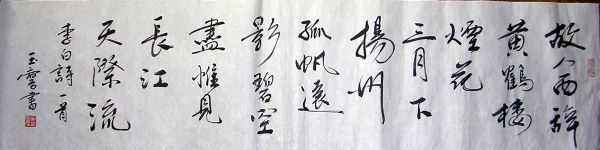 故人西辭
黄鶴樓
煙花
三月下
揚州
孤帆遠
影碧空
盡惟見
長江
天際流
李白詩一首
玉書